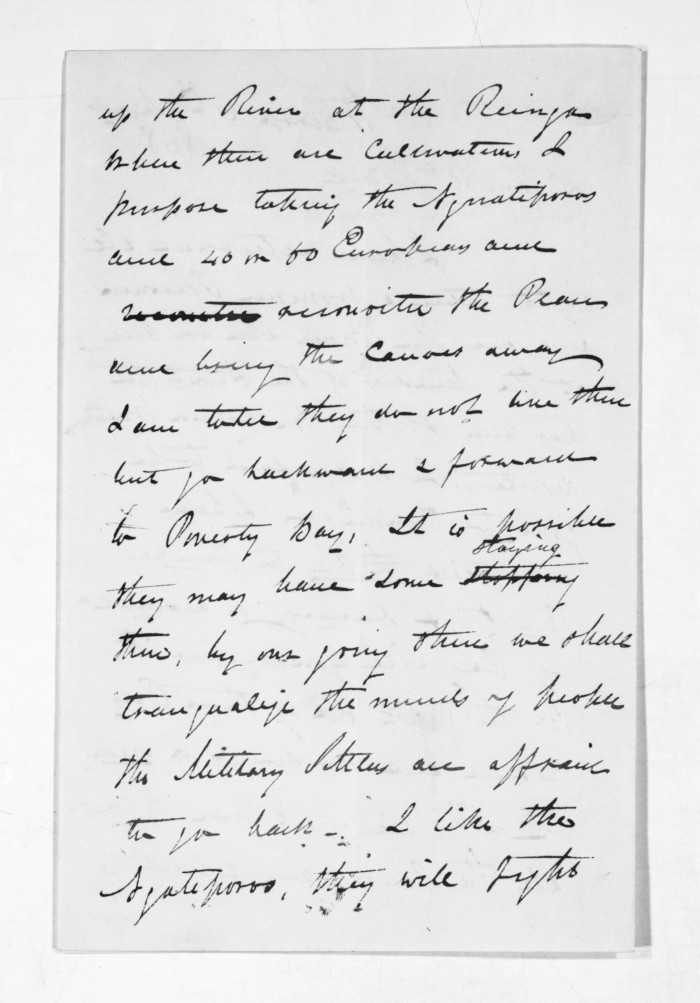 up the River at the Reinga
where there are Cultivations I
purpose taking the Ngnatiporos
and 40 or 50 Europeans and
reconoitre the Place
and bring the Canoes away
I am told they do not live there
but go backward & forward
to Poverty Bay, It is possible
they may have some staying stopping
there, by our going there we shall
tranqualize the minds of people
the Military Settlers are affraid
to go back - I like the
Ngateporos, they will fight